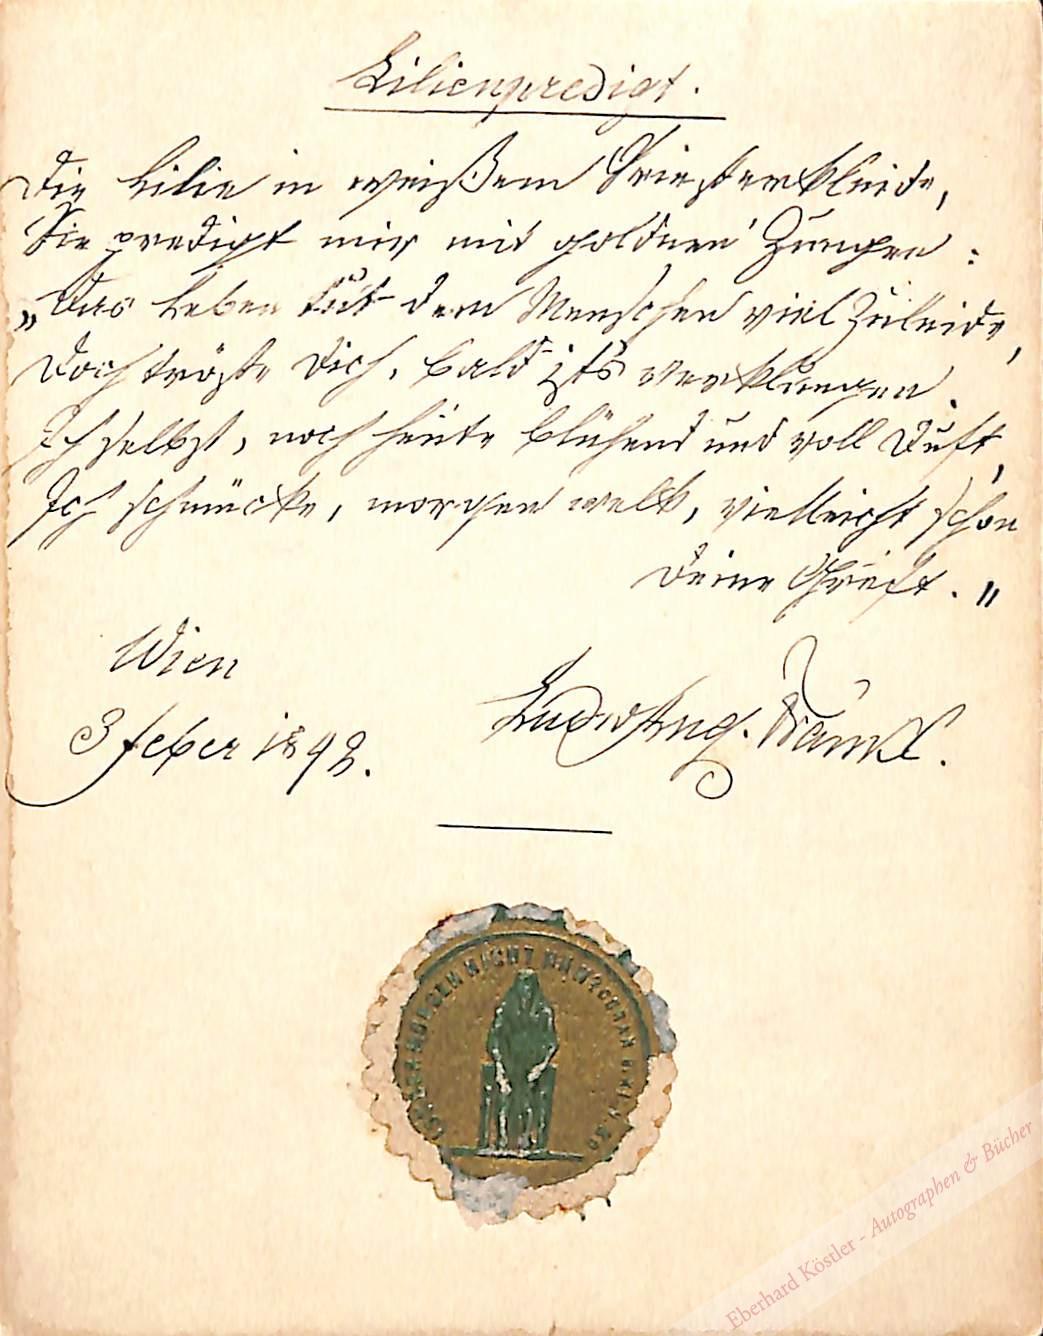 Lilienpredigt.
Die Lilie in weißem Priesterkleide,
Sie predigt mir mit goldnen Zungen:
„Das Leben tut dem Menschen viel zuleide,
Doch tröste Dich, bald ists verklungen.
Ich selbst, noch heute blühend und voll Duft,
Ich schmücke, morgen welk, vielleicht schon
Deine Gruft."
Wien
3 feber 1892.
Ludw Aug. Frankl.
NICHT
Eberhard Köstler - Autographen & Bücher